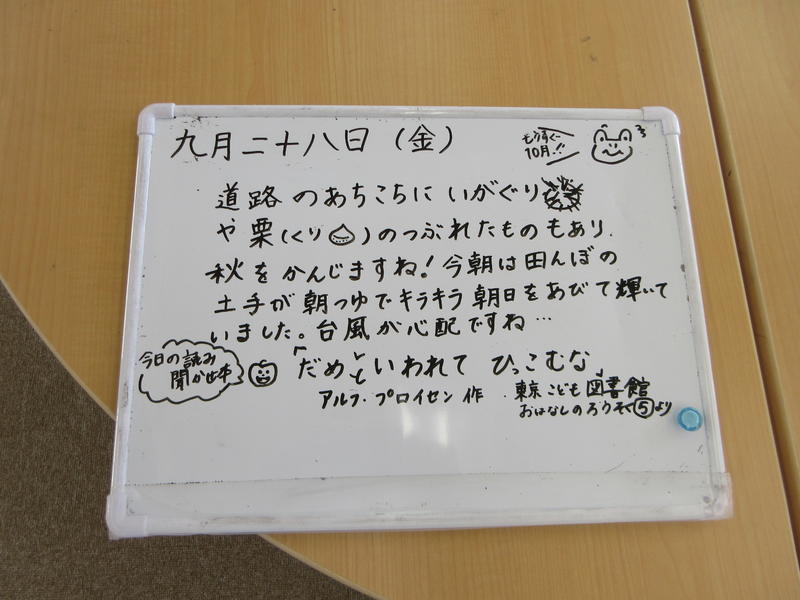 九月二十八日（金）
もうすぐ
10月!!
道路のあちこちに いがぐり
や栗（くり ）のつぶれたものもあり、
秋をかんじますね！今朝は田んぼの
土手が朝つゆでキラキラ朝日をあびて輝いて
いました。台風が心配ですね…
今日の読み
聞かせ本
「だめ」といわれて ひっこむな」
アルフ・プロイセン 作
東京こども図書館
おはなしのろうそく⑤より